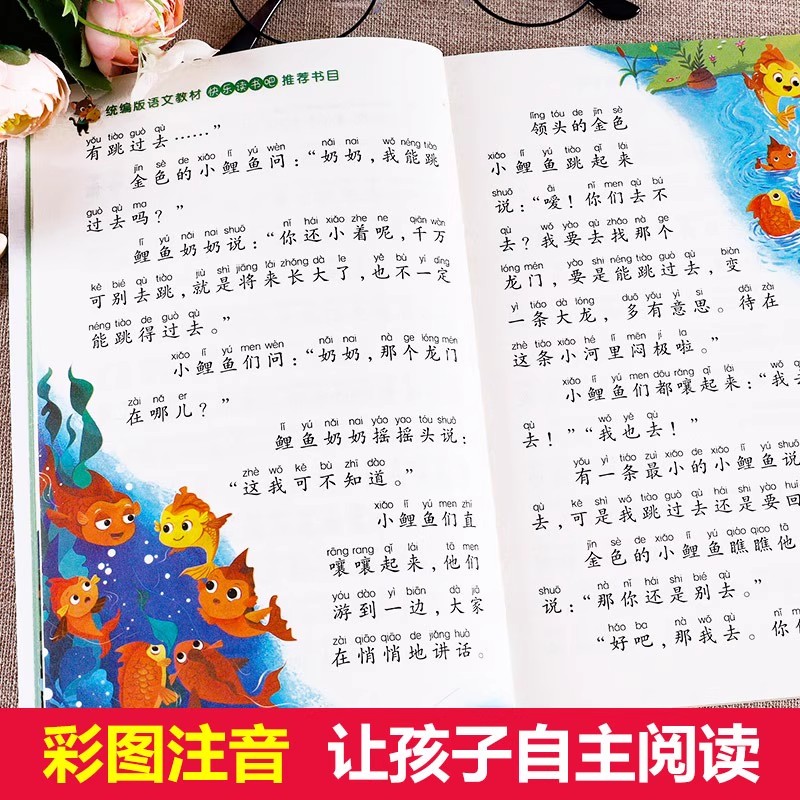 统编版语文教材 快乐读书吧 推荐书目
yǒu tiào guò qù
有跳过去……”
jīn sè de xiǎo lǐ yú wèn nǎi nai wǒ néng tiào
金色的小鲤鱼问：“奶奶，我能跳
guò qù ma
过去吗？”
lǐ yú nǎi nai shuō nǐ hái xiǎo zhe ne qiān wàn
鲤鱼奶奶说：“你还小着呢，千万
kě bié qù tiào jiù shì jiāng lái zhǎng dà le yě bù yí dìng
可别去跳，就是将来长大了，也不一定
néng tiào de guò qù
能跳得过去。”
xiǎo lǐ yú men wèn nǎi nai nà ge lóng mén
小鲤鱼们问：“奶奶，那个龙门
zài nǎ er
在哪儿？”
lǐ yú nǎi nai yáo yao tóu shuō
鲤鱼奶奶摇摇头说：
zhè wǒ kě bù zhī dào
“这我可不知道。”
xiǎo lǐ yú men zhí
小鲤鱼们直
rāng rang qǐ lái tā men
嚷嚷起来，他们
yóu dào yì biān dà jiā
游到一边，大家
zài qiāo qiāo de jiǎng huà
在悄悄地讲话。
lǐng tóu de jīn sè
领头的金色
xiǎo lǐ yú tiào qǐ lái
小鲤鱼跳起来
shuō āi nǐ men qù bú
说：“嗳！你们去不
qù wǒ yào qù zhǎo nà ge
去？我要去找那个
lóng mén yào shi néng tiào guò qù biàn
龙门，要是能跳过去，变
yì tiáo dà lóng duō yǒu yì si dāi zài
一条大龙，多有意思。待在
zhè tiáo xiǎo hé lǐ mèn jí la
这条小河里闷极啦。”
xiǎo lǐ yú men dōu rǎng qǐ lái wǒ
小鲤鱼们都嚷起来：“我去
qù wǒ yě qù
去！”“我也去！”
yǒu yì tiáo zuì xiǎo de xiǎo lǐ yú shuō
有一条最小的小鲤鱼说
qù kě shì wǒ tiào guò qù hái shi yào huí
去，可是我跳过去还是要回
jīn sè de xiǎo lǐ yú qiáo qiao tā
金色的小鲤鱼瞧瞧他
shuō nà nǐ hái shi bié qù
说：“那你还是别去。”
hǎo ba nà wǒ qù nǐ
“好吧，那我去。你
彩图注音 让孩子自主阅读